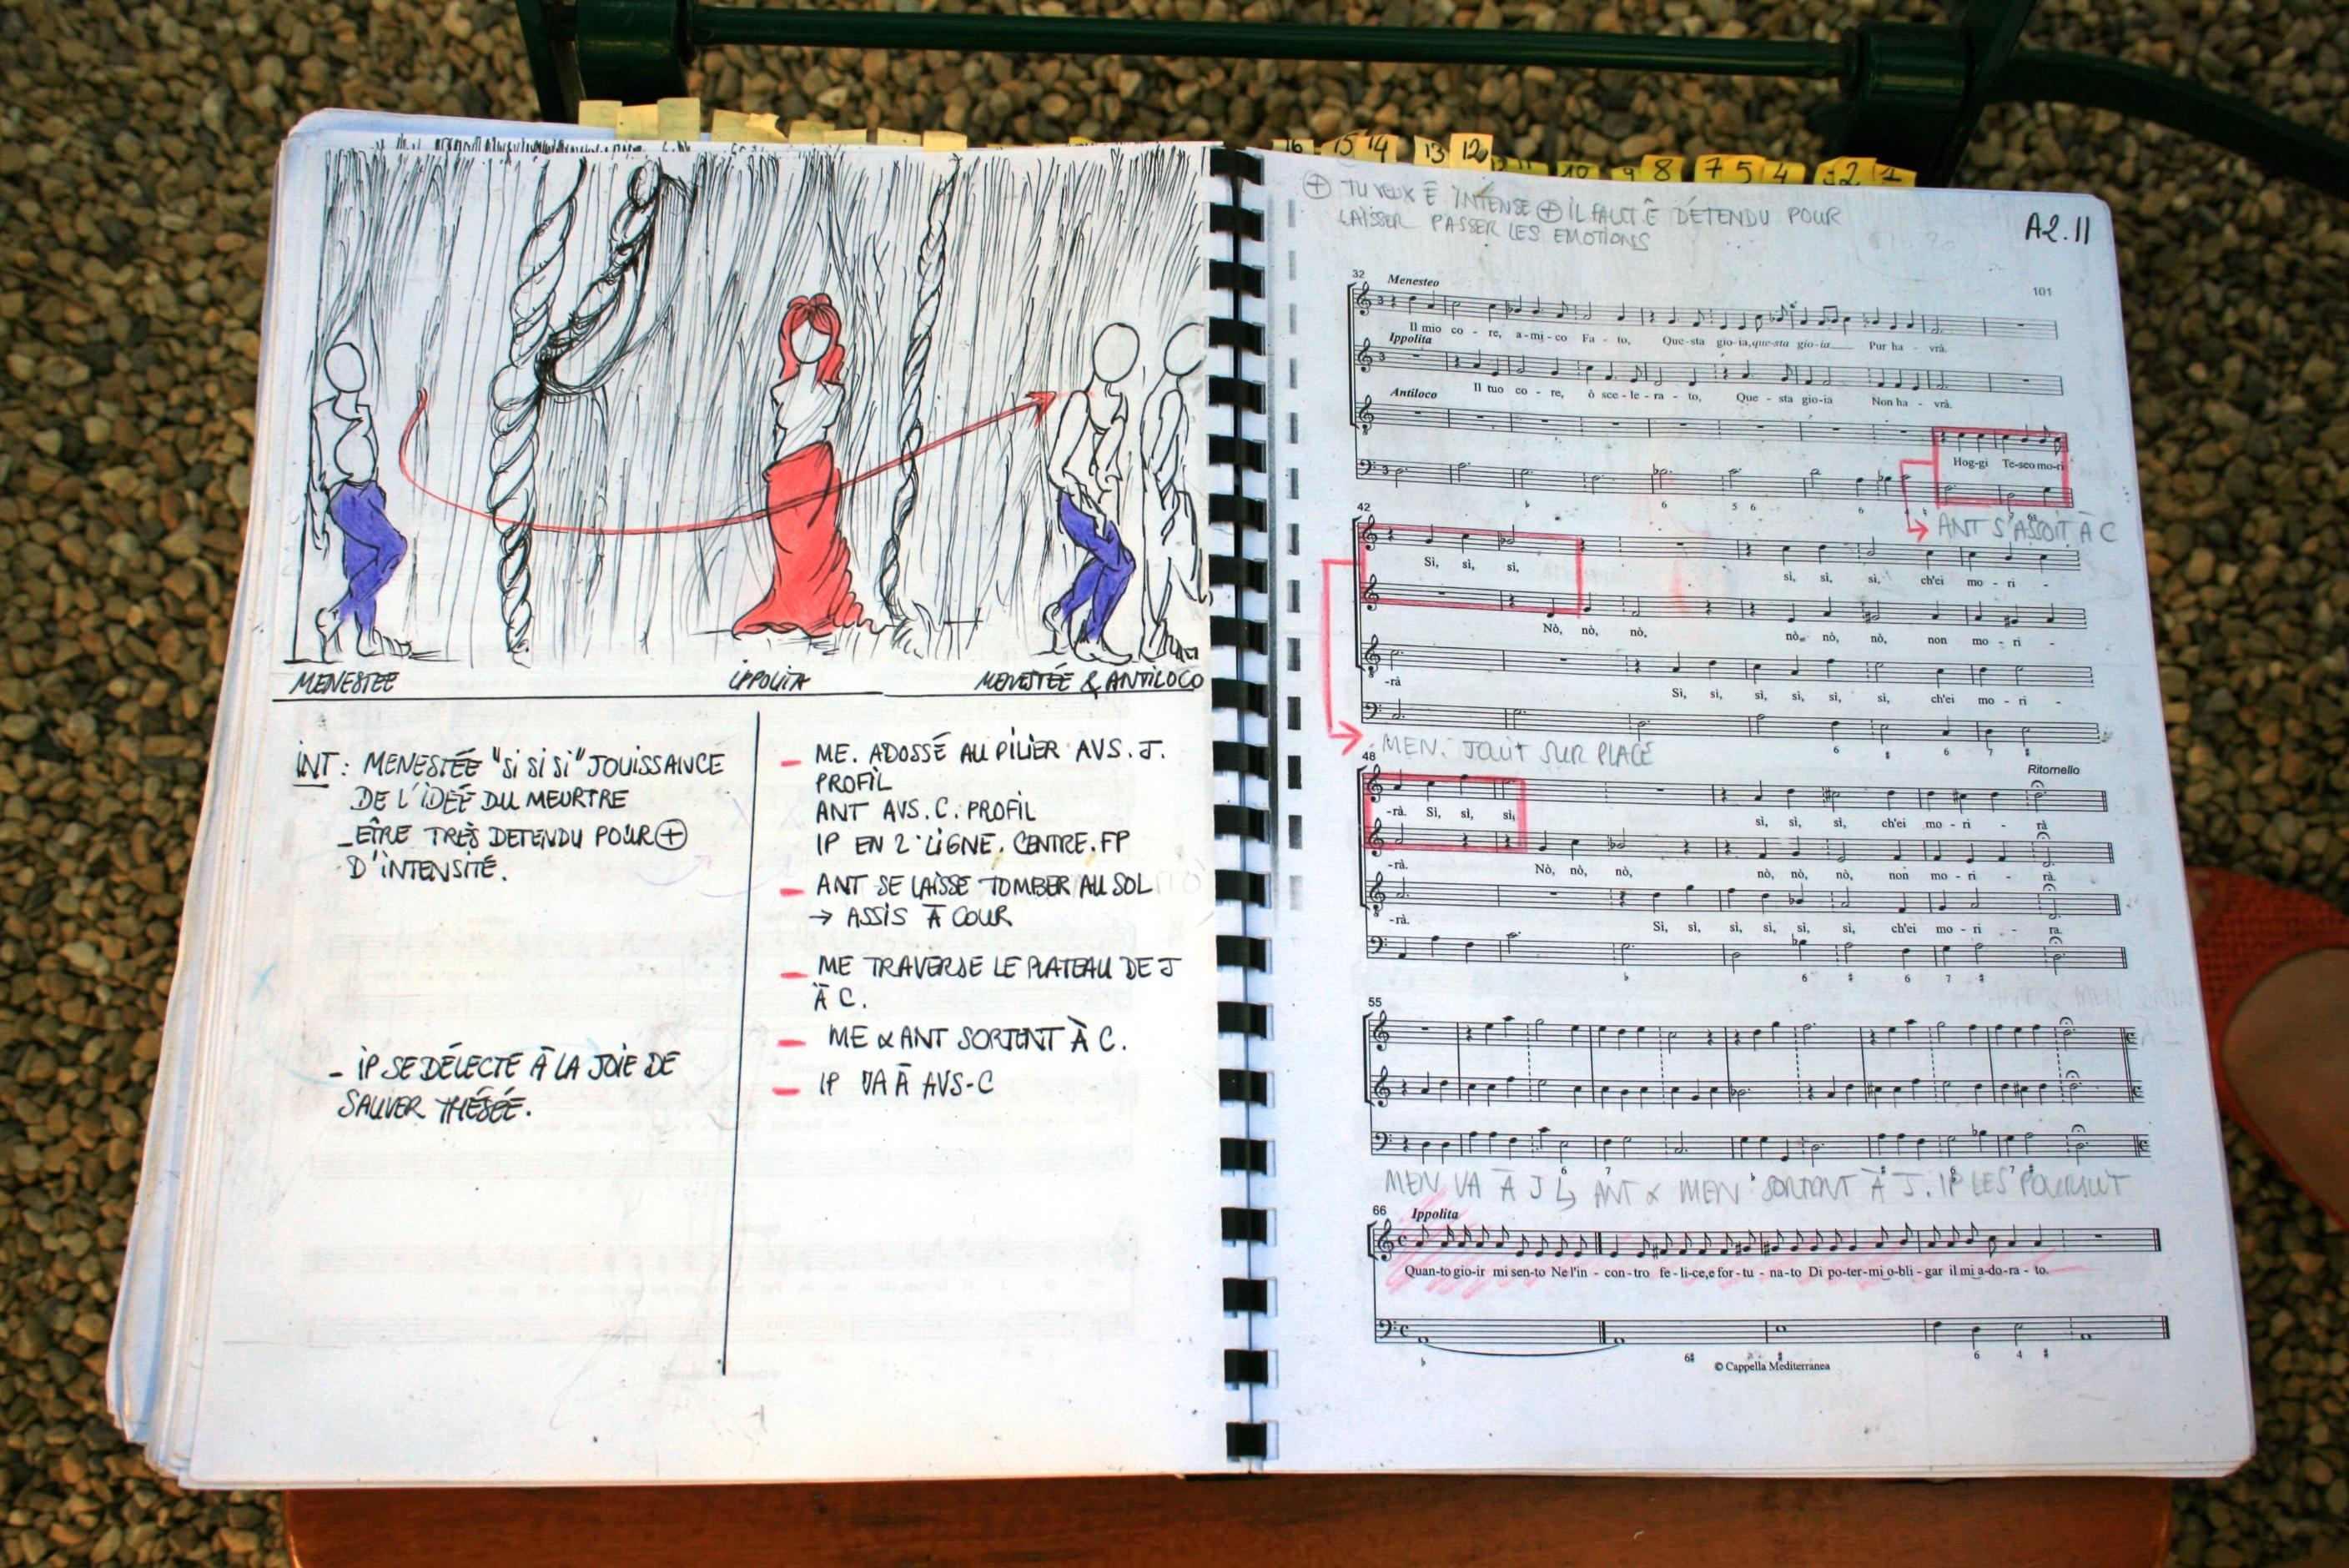 MENESTEE
IPPOLITA
MENESTÉE & ANTILOCO
INT : MENESTÉE "SI SI SI" JOUISSANCE
DE L'IDÉE DU MEURTRE
_ ETRE TRÈS DETENDU POUR ⊕
D'INTENSITÉ.
- IP SE DÉLECTE À LA JOIE DE
SAUVER THÉSÉE.
– ME. ADOSSÉ AU PILIER AVS. J.
PROFIL
ANT AVS. C. PROFIL
IP EN 2° LIGNE. CENTRE. FP
– ANT SE LAISSE TOMBER AU SOL
→ ASSIS À COUR
– ME TRAVERSE LE PLATEAU DE J
À C.
– ME & ANT SORTENT À C.
– IP VA À AVS-C
16 15 14 13 12 11 10 9 8 7 5 4 2 1
⊕ TU VEUX Ê INTENSE ⊕ IL FAUT Ê DÉTENDU POUR
LAISSER PASSER LES EMOTIONS
A2.11
101
32
Menesteo
Il mio co - re, a - mi - co Fa - to, Que-sta gio-ia, que-sta gio-ia Pur ha - vrà.
Ippolita
Il tuo co - re, ò sce - le - ra - to, Que - sta gio-ia Non ha - vrà.
Antiloco
Hog-gi Te-seo mo-ri
♭ 6 5 6 6
ANT S'ASSOIT À C
42
Sì, sì, sì, sì, sì, sì, ch'ei mo - ri -
Nò, nò, nò, nò, nò, nò, non mo - ri -
-rà Sì, sì, sì, sì, sì, sì, ch'ei mo - ri -
6 6 7
MEN. JOUIT SUR PLACE
48
Ritornello
-rà. Sì, sì, sì, sì, sì, sì, ch'ei mo - ri - rà
-rà. Nò, nò, nò, nò, nò, nò, non mo - ri - rà.
-rà. Sì, sì, sì, sì, sì, sì, ch'ei mo - ri - ra.
♭ 6 6 7
55
6 7 6 7
MEN VA À J ↳ ANT & MEN SORTENT À J. IP LES POURSUIT
66
Ippolita
Quan-to gio-ir mi sen-to Ne l'in - con-tro fe-li-ce, e for-tu - na-to Di po-ter-mi o-bli - gar il mi a-do-ra - to.
♭ 6 6 4
© Cappella Mediterranea